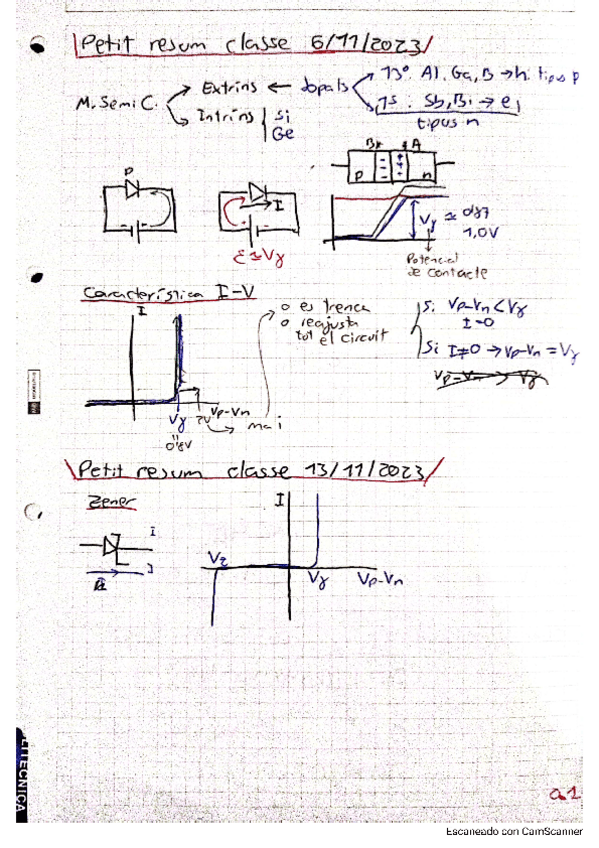 Petit resum classe 6/11/2023
M. Semi C.
Extrins ← dopats
13º Al, Ga, B → h. tipus p
15: Sb, Bi → e
tipus n
Intrins
Si
Ge
P
I
ε≈Vγ
B A
p n
Vγ ≈
1,0V
Potencial
de contacte
Característica I-V
I
Vγ
2V
Vp-Vn
mai
o es trenca
o reajusta
tot el circuit
Si Vp-Vn < Vγ
I=0
Si I≠0 → Vp-Vn = Vγ
Petit resum classe 13/11/2023
Zener
I
I
Vz
Vγ
Vp-Vn
a1
LITECNICA
Escaneado con CamScanner